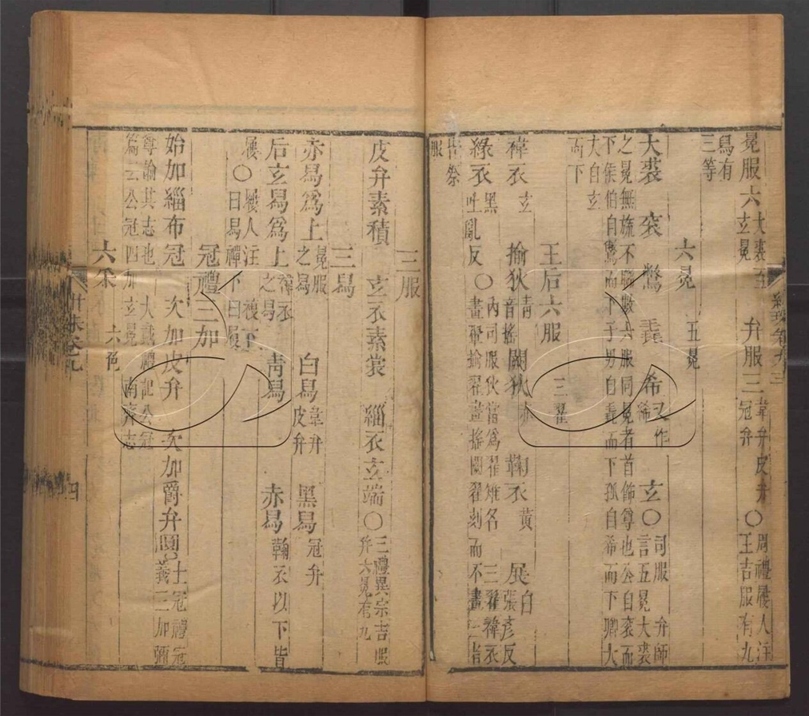 冕服六 大裘至玄冕 弁服三 韋弁皮弁冠弁 ○周禮屨人注王吉服有九
舄有三等
六冕 五冕
大裘 袞 鷩 毳 希 又作絺 玄○司服 弁師言五冕大裘
之冕無旒不聯數六服同冕者首飾尊也公自袞而
下侯伯自鷩而下子男自毳而下孤自希而下卿大
大自玄而下
王后六服 三翟
褘衣 玄 揄狄 青音搖 闕狄 赤 鞠衣 黃 展 白張彥反
緣衣 黑吐亂反 ○內司服狄當為翟雉名 三翟褘衣畫翬揄翟畫搖闕翟刻而不畫 三者
皆祭服
三服
皮弁素積 玄衣素裳 緇衣玄端○三禮義宗吉服弁六冕有九
三舄
赤舄為上 冕服之舄 白舄 韋弁皮弁 黑舄 冠弁
后玄舄為上 褘衣之舄 青舄 赤舄 鞠衣以下皆
屨○屨人注複下曰舄禪下曰屨
冠禮三加
始加緇布冠 次加皮弁 次加爵弁 士冠禮冠義三加彌
尊諭其志也 大戴禮記公冠篇云公冠四加玄冕 南齊志
六采 六色
四